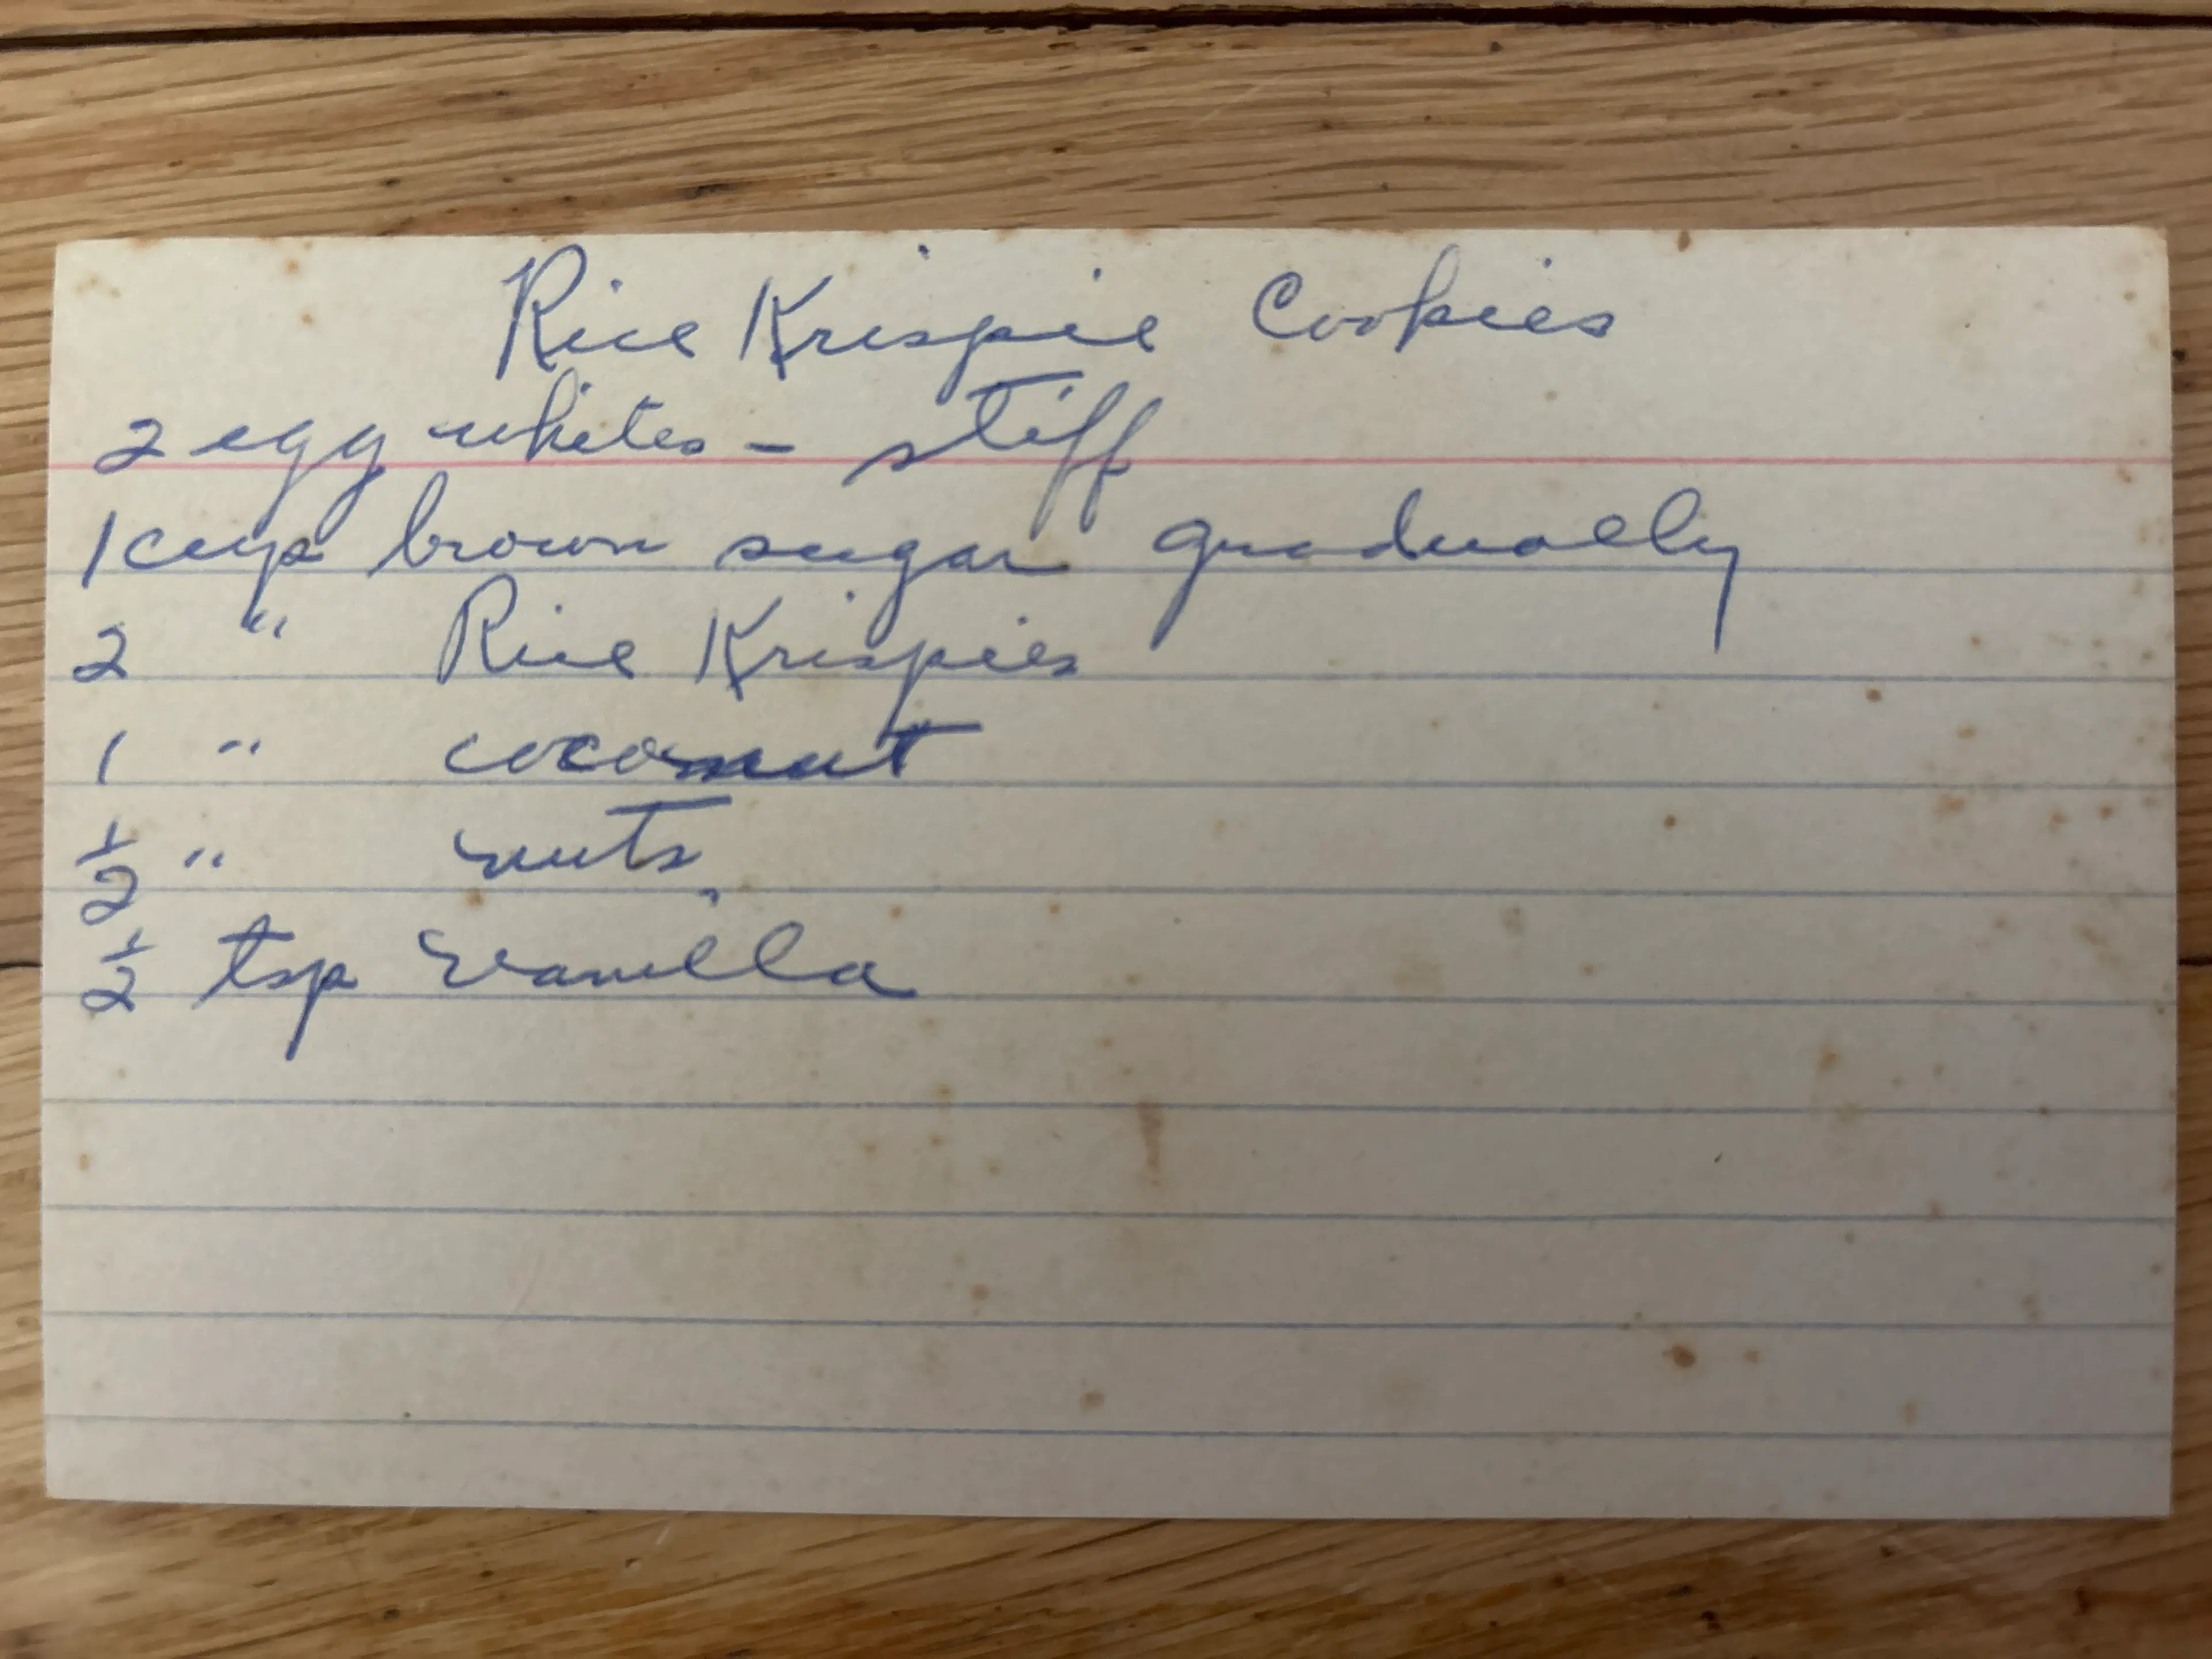 Rice Krispie Cookies
2 egg whites - stiff
1 cup brown sugar gradually
2 " Rice Krispies
1 " coconut
1/2 " nuts
1/2 tsp vanilla